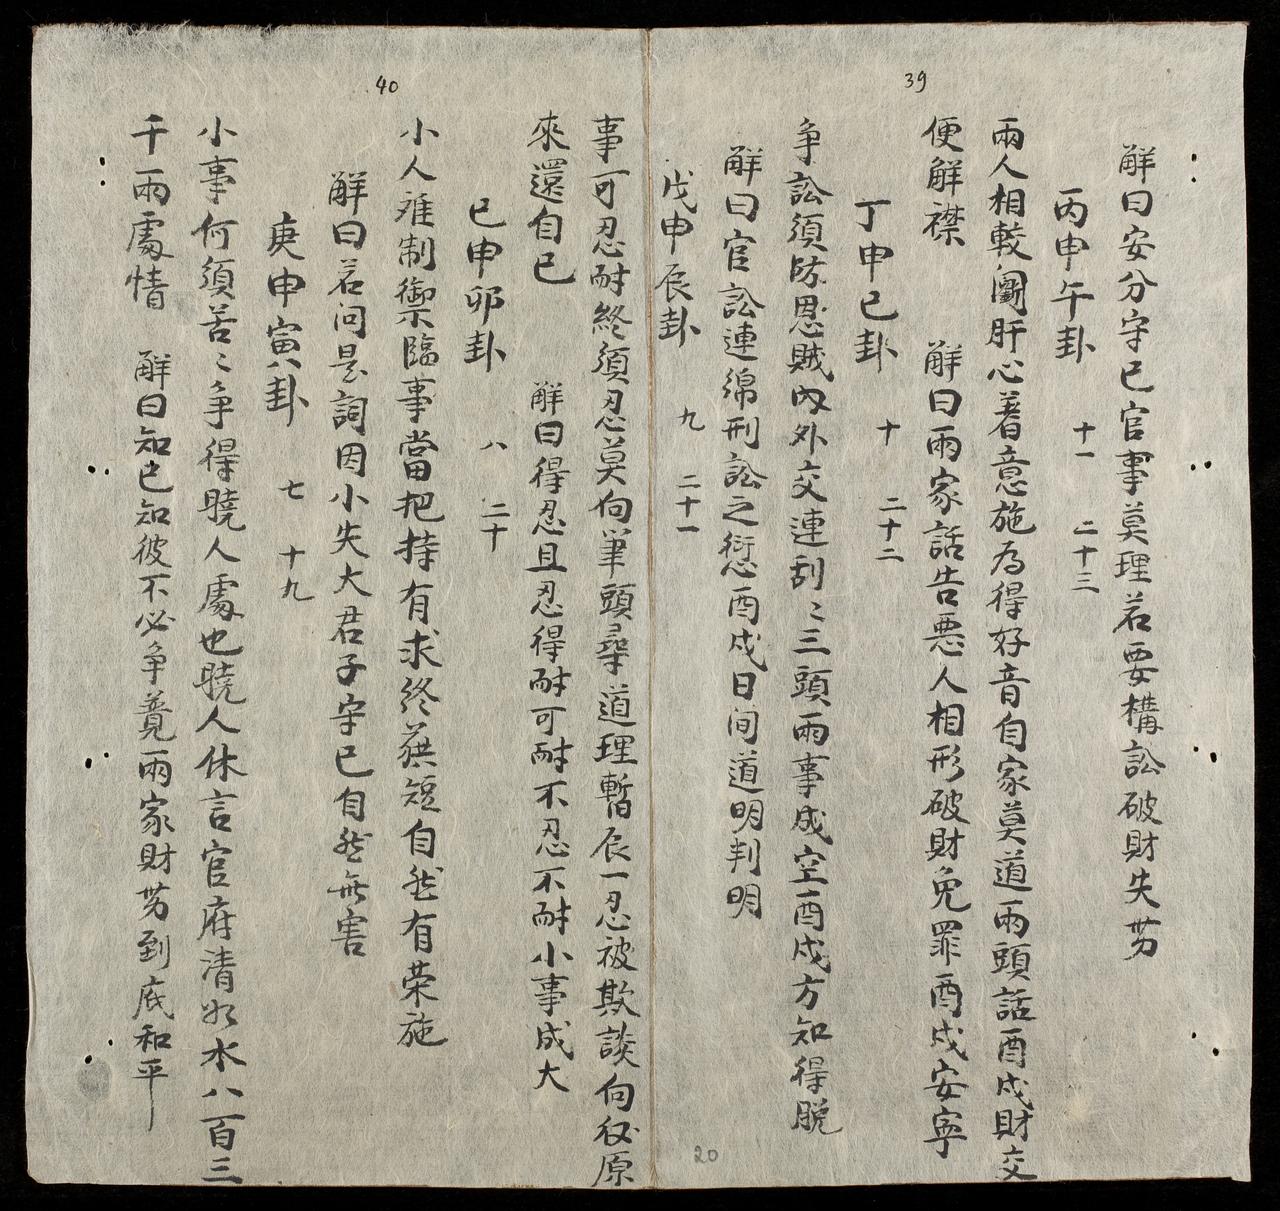 39
解曰安分守己官事莫理若要構訟破財失势
丙申午卦 十一 二十三
兩人相較鬭肝心着意施為得好音自家莫道兩頭話酉戍財交
便解襟 解曰兩家話告悪人相形破財免罪酉戍安寧
丁申巳卦 十 二十二
争訟須防恩賊內外交連刮〻三頭兩事成空酉戍方知得脱
解曰官訟連綿刑訟之愆酉戍日间道明判明
戊申辰卦 九 二十一
40
事可忍耐終須忍莫向筆頭尋道理暫辰一忍被欺談向後原
來還自己 解曰得忍且忍得耐可耐不忍不耐小事成大
己申卯卦 八 二十
小人难制禦臨事當把持有求終無短自然有荣施
解曰若问是詞因小失大君子守己自然無害
庚申寅卦 七 十九
小事何須苦〻争得曉人處也曉人休言官府清如水八百三
千兩處情 解曰知己知彼不必争競兩家財势到底和平
20